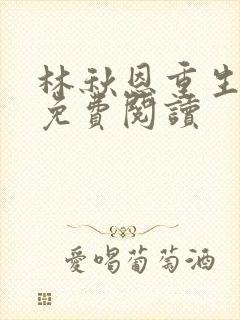 林秋恩重生
免費閱讀
愛喝葡萄酒